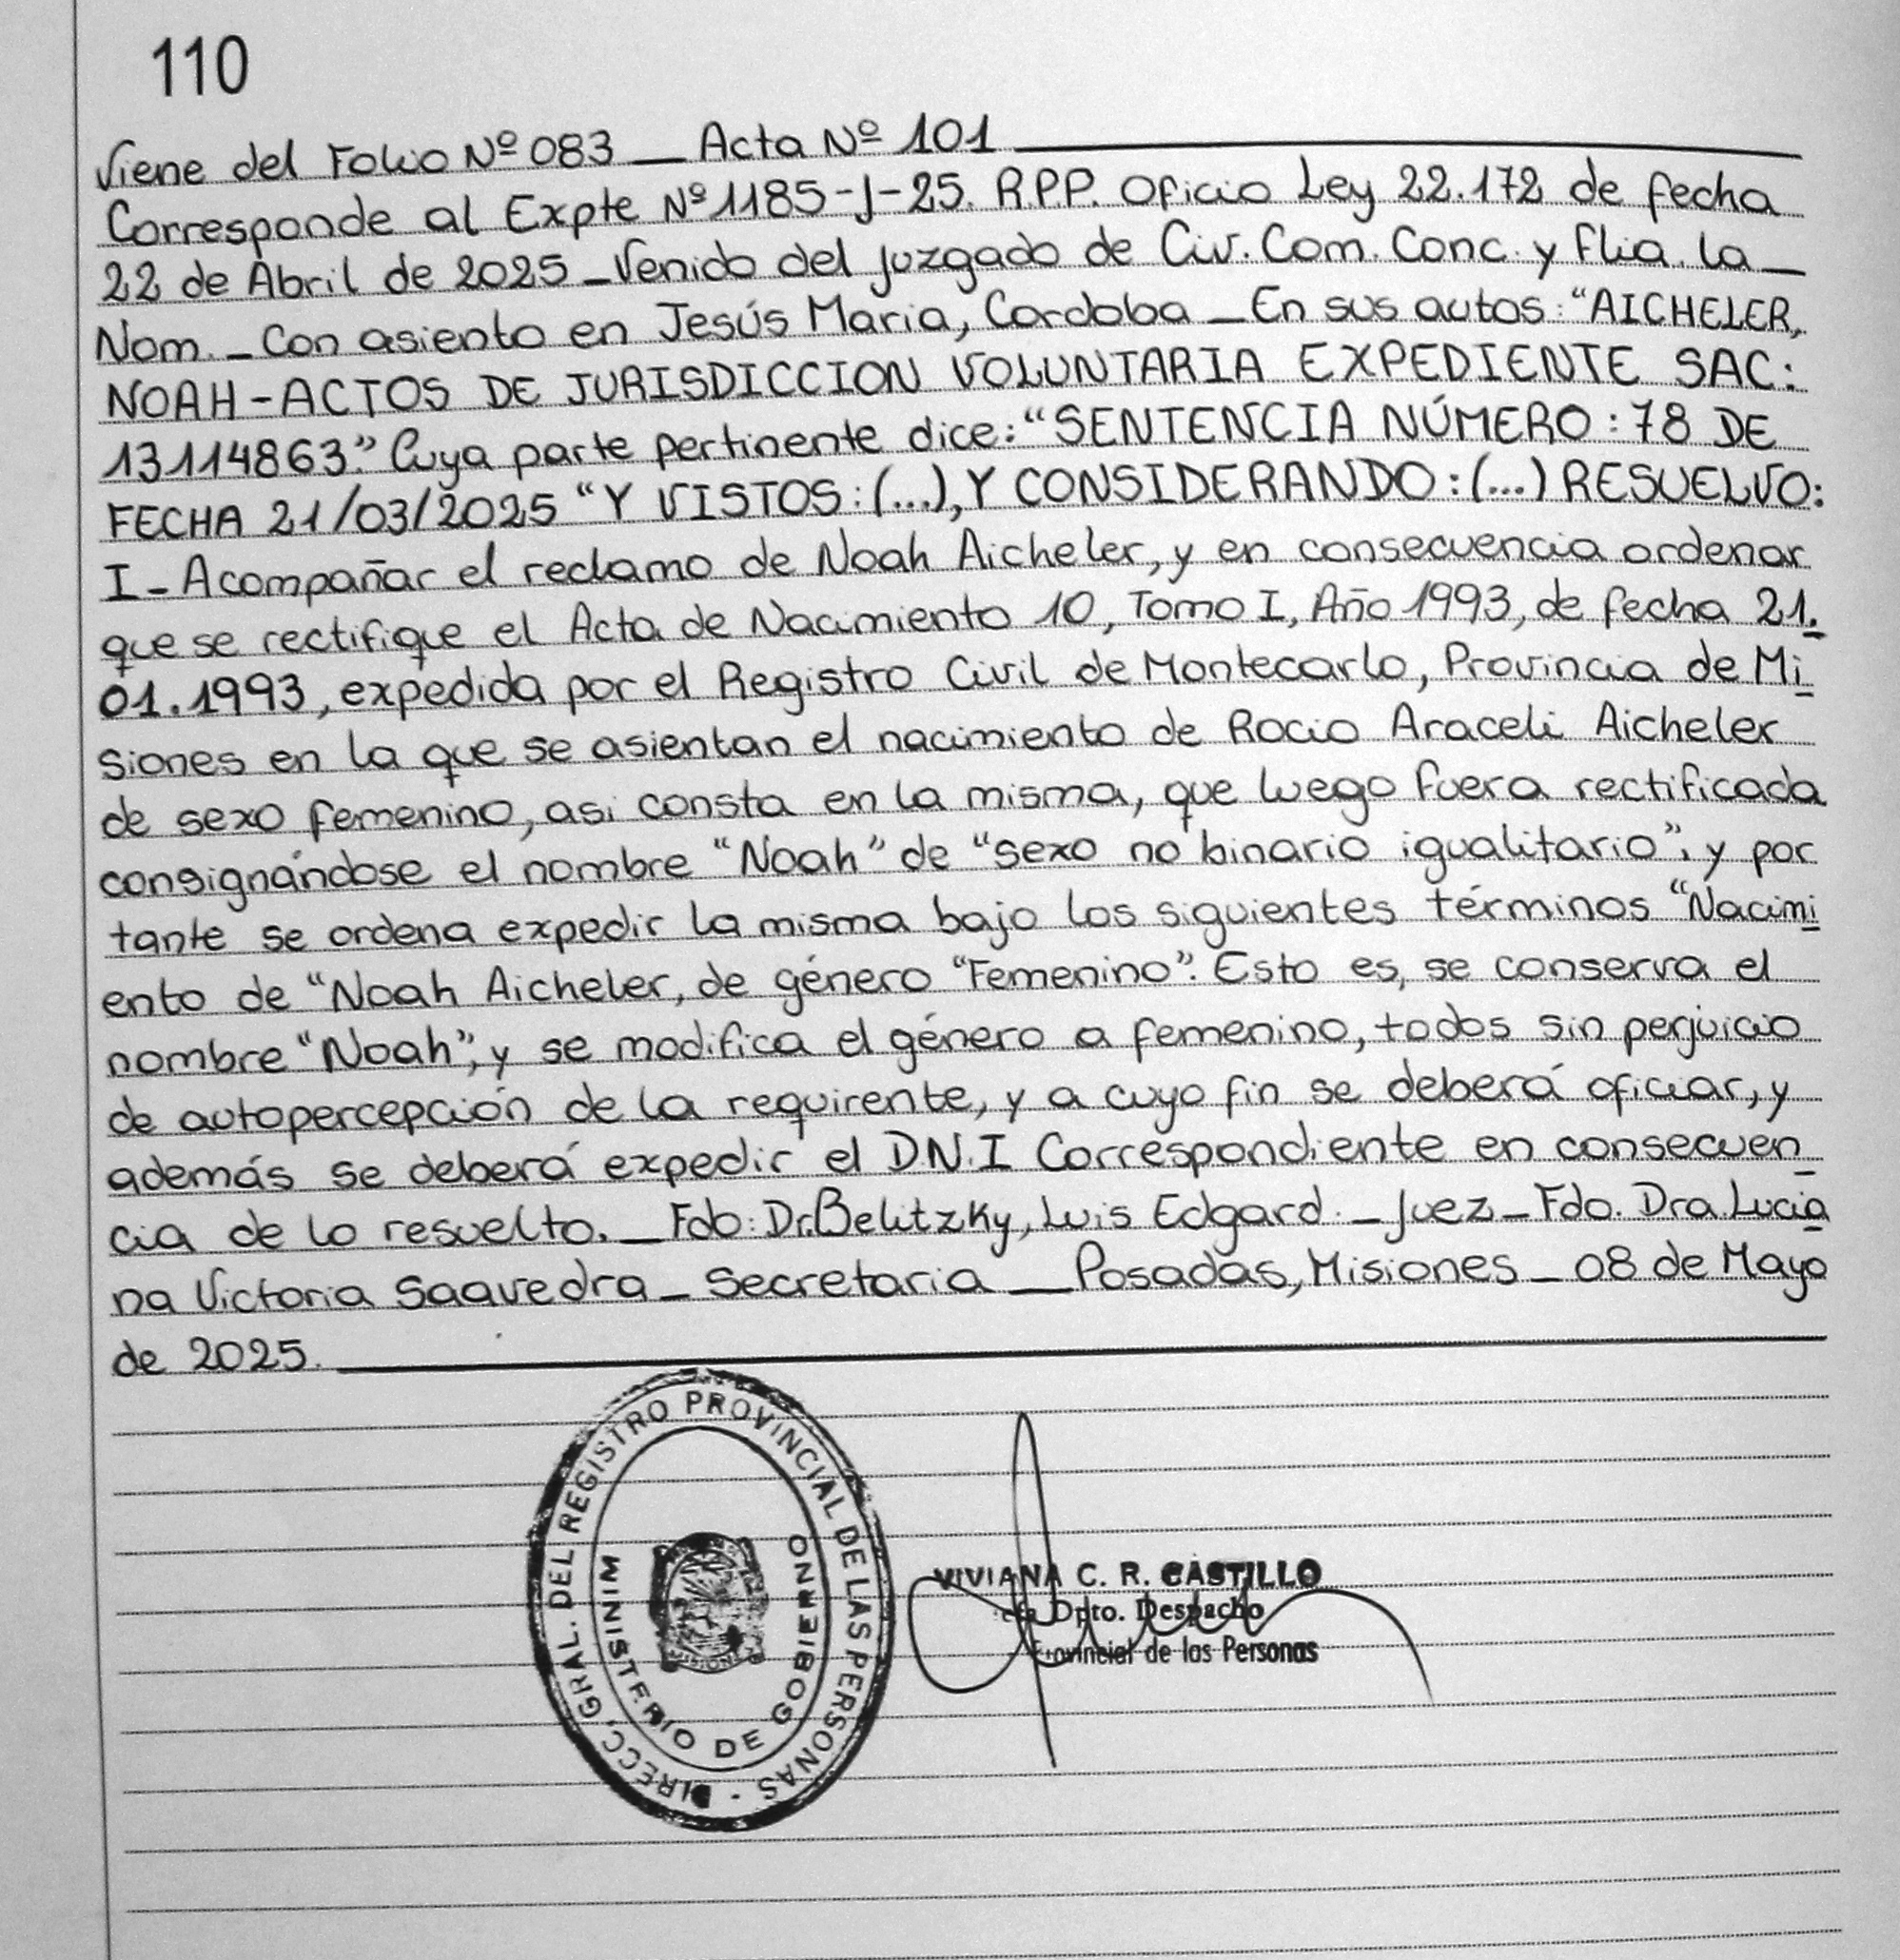 110
Viene del Folio Nº 083 _ Acta Nº 101
Corresponde al Expte Nº 1185-J-25. R.P.P. Oficio Ley 22.172 de fecha
22 de Abril de 2025 _ Venido del Juzgado de Civ. Com. Conc. y Flia. 1a _
Nom. _ Con asiento en Jesús Maria, Cordoba _ En sus autos: "AICHELER,
NOAH-ACTOS DE JURISDICCION VOLUNTARIA EXPEDIENTE SAC:
13114863." Cuya parte pertinente dice: "SENTENCIA NÚMERO: 78 DE
FECHA 21/03/2025 "Y VISTOS: (...), Y CONSIDERANDO: (...) RESUELVO:
I _ Acompañar el reclamo de Noah Aicheler, y en consecuencia ordenar
que se rectifique el Acta de Nacimiento 10, Tomo I, Año 1993, de fecha 21.
01.1993, expedida por el Registro Civil de Montecarlo, Provincia de Mi
siones en la que se asientan el nacimiento de Rocio Araceli Aicheler
de sexo femenino, asi consta en la misma, que luego fuera rectificada
consignándose el nombre "Noah" de "sexo no binario igualitario", y por
tante se ordena expedir la misma bajo los siguientes términos "Nacimi
ento de "Noah Aicheler, de género "Femenino". Esto es, se conserva el
nombre "Noah", y se modifica el género a femenino, todos sin perjuicio
de autopercepción de la requirente, y a cuyo fin se deberá oficiar, y
además se deberá expedir el D.N.I Correspondiente en consecuen
cia de lo resuelto. _ Fdo: Dr. Belitzky, Luis Edgard. _ Juez _ Fdo. Dra. Lucia
na Victoria Saavedra _ Secretaria _ Posadas, Misiones _ 08 de Mayo
de 2025.
DIRECC. GRAL. DEL REGISTRO PROVINCIAL DE LAS PERSONAS -
MINISTERIO DE GOBIERNO
VIVIANA C. R. CASTILLO
Dpto. Despacho
Provincial de las Personas